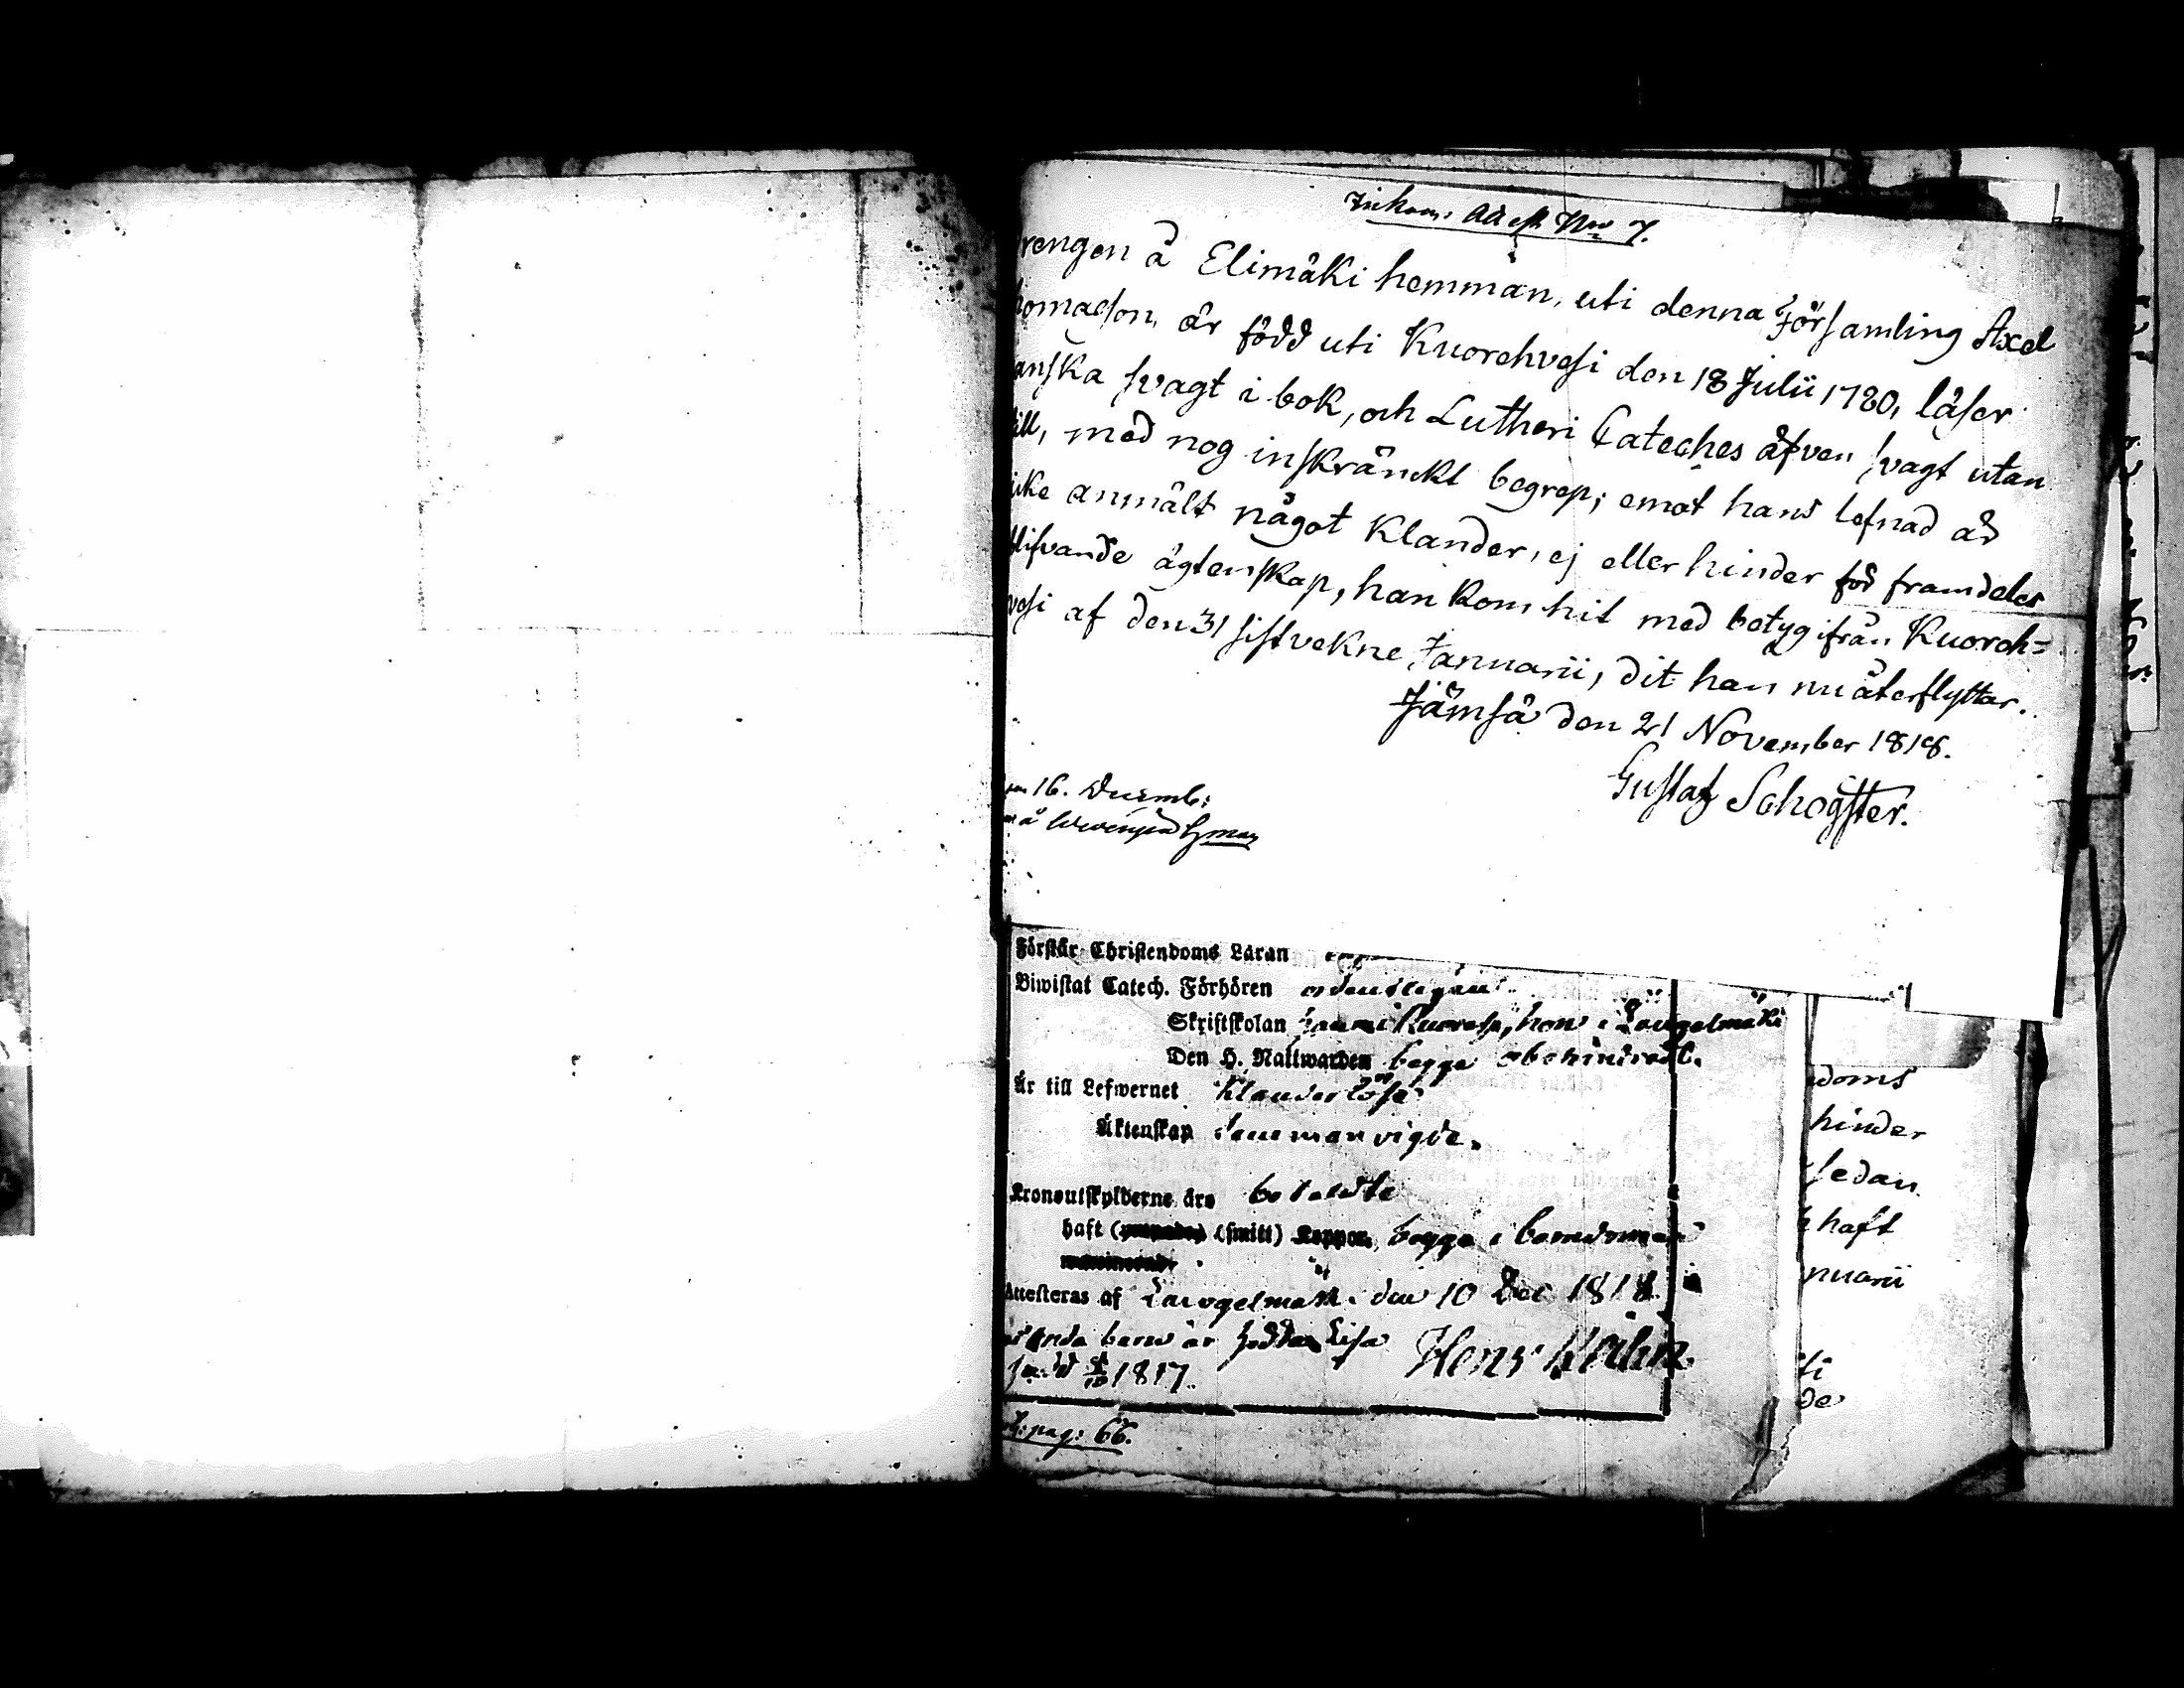 Inkom. Attest No 7.
rengen å Elimäki hemman, uti denna Församling Axel
homasson, är född uti Kuorehvesi den 18 Julii 1780, läser
anska svagt i bok, och Lutheri Cateches äfven svagt utan
till, med nog inskränckt begrep; emot hans lefnad är
icke anmält något klander, ej eller hinder för framdeles
blifvande ägtenskap, han kom hit med betyg ifrån Kuoreh=
vesi af den 31 sistvekne Januarii, dit han nu återflyttar.
Jämsä den 21 November 1818.
Gustaf Schogster.
16. Decemb:
Förstår Christendoms Läran
Biwistat Catech. Förhören ordentligen
Skriftskolan han i Kuorehv, hon i Längelmäki
Den H. Nattwarden begge obehindradt.
Är till Lefwernet Klanderlösa
Äktenskap sammanvigde.
Kronoutskylderne äro betaldte
haft (smitt) Koppor, begge i barndomen
Attesteras af Längelmäki den 10 Dec 1818.
barn är Lisa Henr
född 1817.
pag: 66.
doms
hinder
sedan
haft
nuarii
ti
de